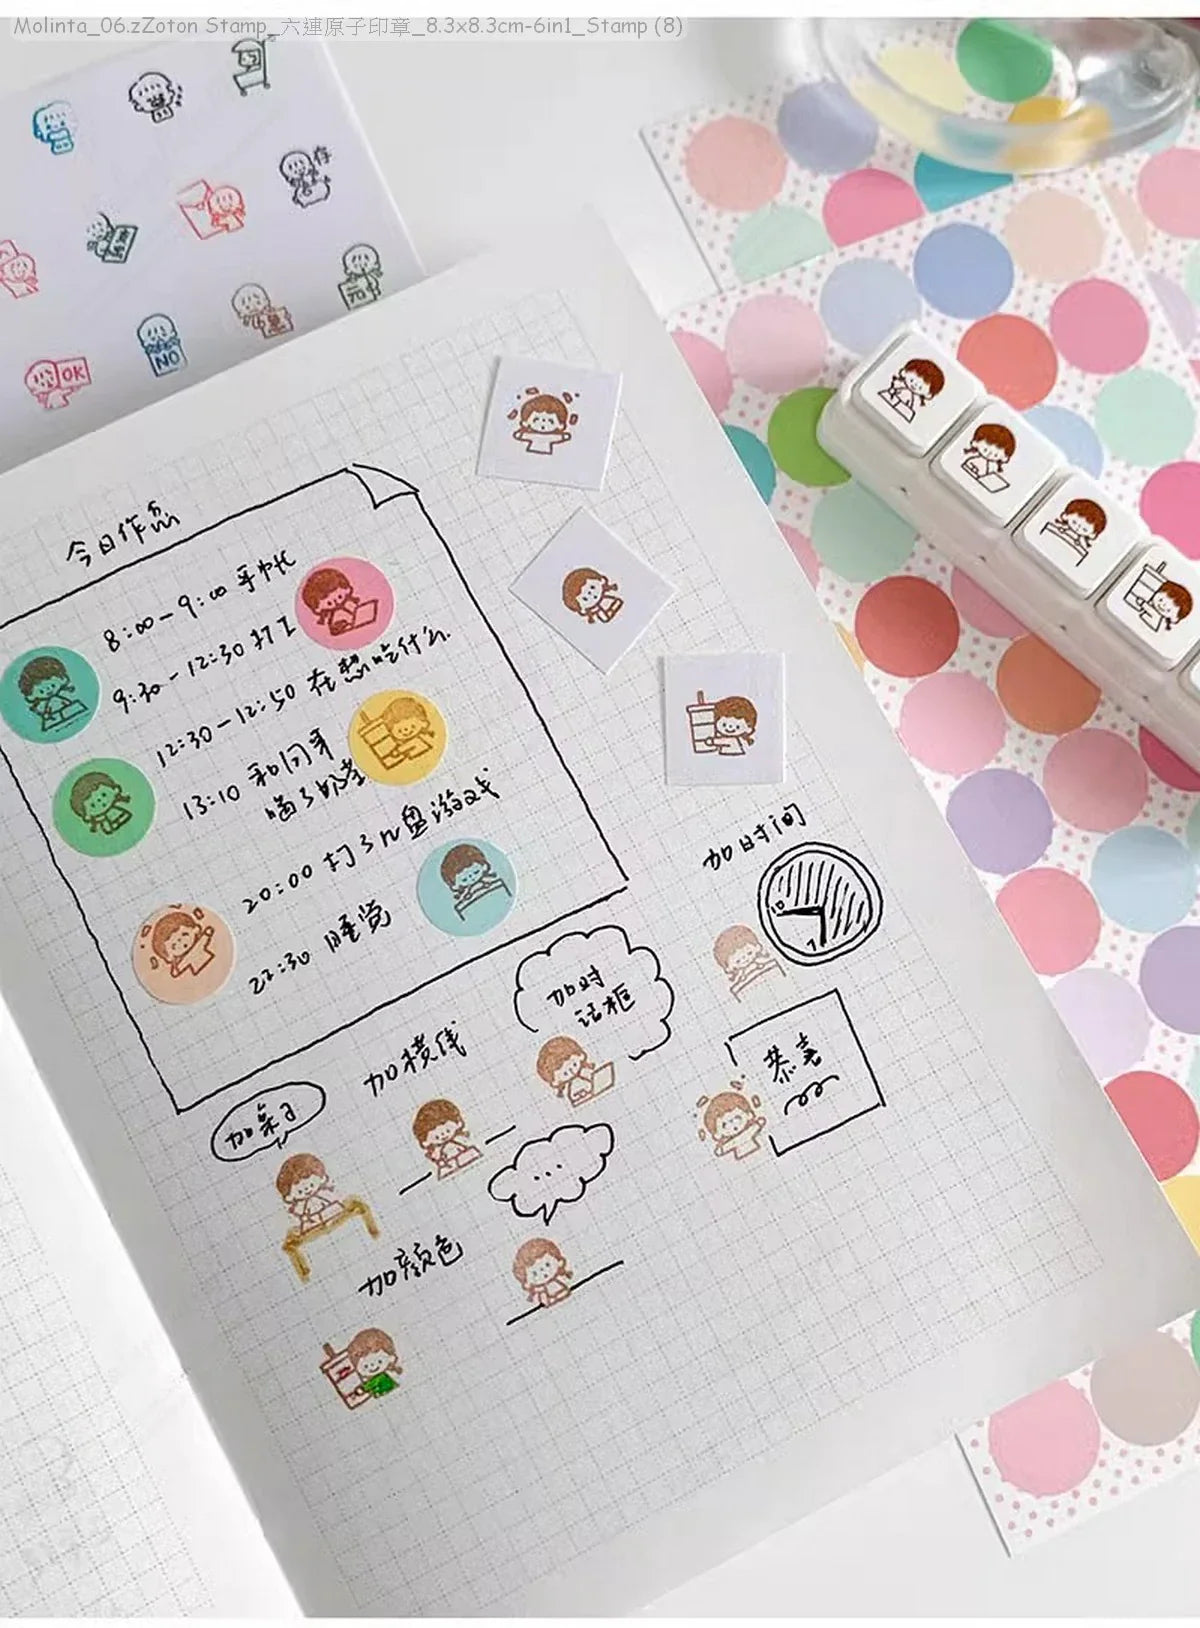 Molinta_06.zZoton Stamp_六連原子印章_8.3x8.3cm-6in1_Stamp (8)
存
元
NO
OK
今日作息
8:00-9:00 手帐
9:30-12:30 打工
12:30-12:50 在想吃什么
13:10 和闪牙
喝了奶茶
20:00 打了几盘游戏
22:30 睡觉
加时间
10
7
加对
话框
加横线
恭喜
加桌子
...
加颜色